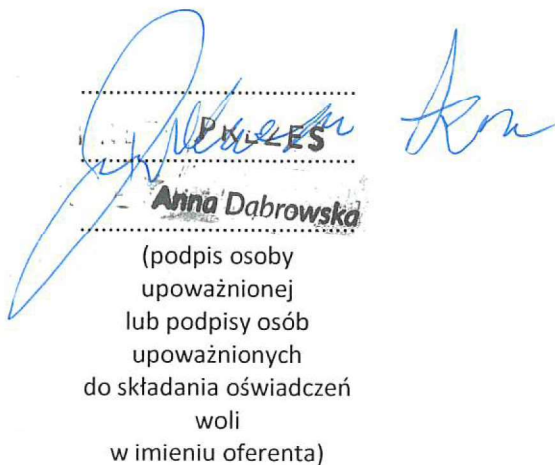 Anna Dąbrowska
(podpis osoby
upoważnionej
lub podpisy osób
upoważnionych
do składania oświadczeń
woli
w imieniu oferenta)